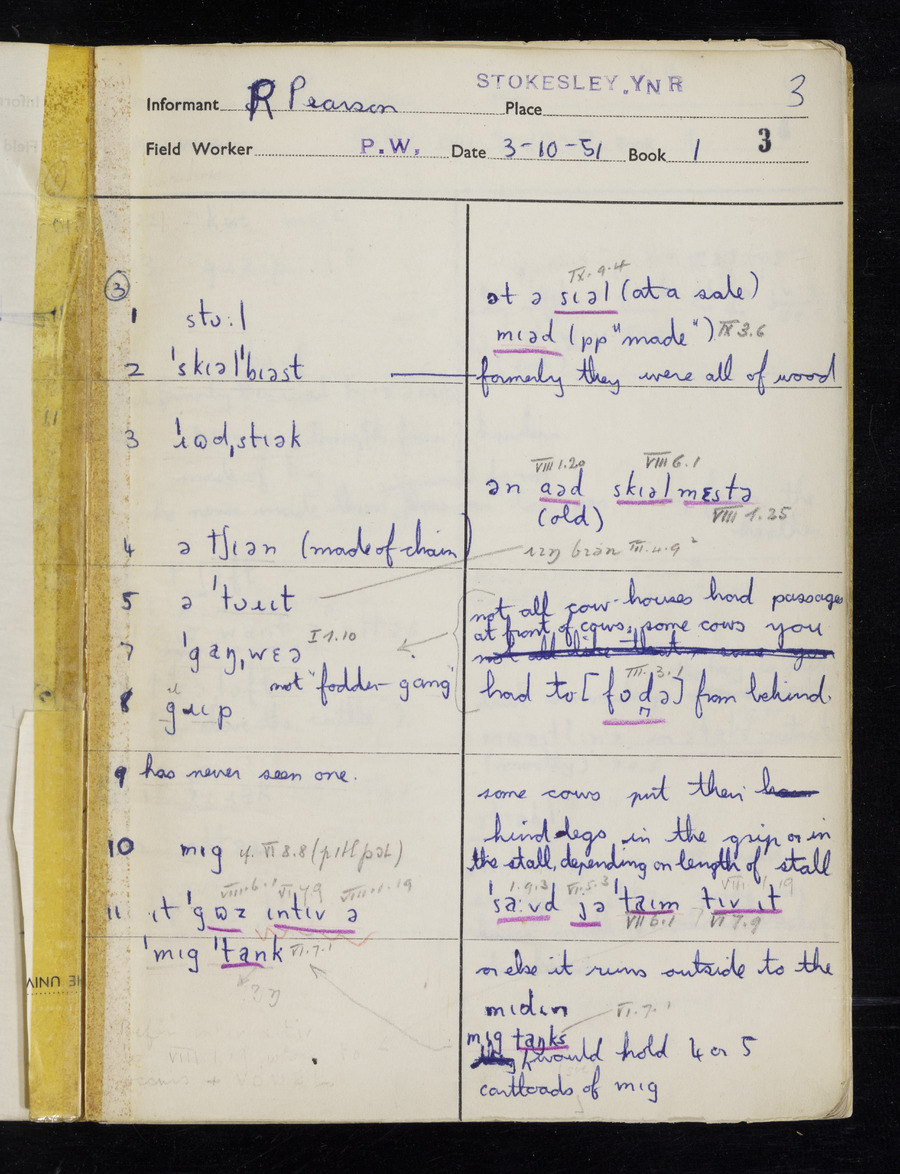 STOKESLEY, Y N R
3
Informant R Pearson Place
Field Worker P.W. Date 3-10-51 Book 1 3
③
1 stʊ:l
2 ˈskɪəlˈbɪəst
3 ˈɹɷdˌstɪək
4 ə tʃɪən (made of chain)
5 ə ˈtʊɹɪt
7 ˈgaŋˌwɛə I 1.10
not "fodder-gang"
8 gɹɪp
9 has never seen one.
10 mɪg cf. VI 8.8 (pɪtlpət)
VIII.6.1 VI 7.9 VIII.1.19
11 ɪt ˈgɷz ɪntɪv ə
ˈmɪg ˈtank VI.7.1
? ŋ
IX.9.4
ət ə sɪəl (at a sale)
mɪəd (pp "made") IX 3.6
formerly they were all of wood
VIII 1.20 VIII 6.1
ən aəd skɪəlmɛstə
(old) VIII 1.25
ɪɪŋ bɪən III.4.9
not all cow-houses had passages
at front of cows, some cows you
had to [fodə] from behind.
III.3.1
some cows put their
hind-legs in the grip or in
the stall, depending on length of stall
1.9.3 VI.5.3 VIII.1.19
ˈsa:vd jə ˈtaɪm tɪv ɪt
VII 6.1 VI 7.9
or else it runs outside to the
mɪdɪn
VI.7.1
mɪg taŋks
would hold 4 or 5
cartloads of mɪg
THE UNIV